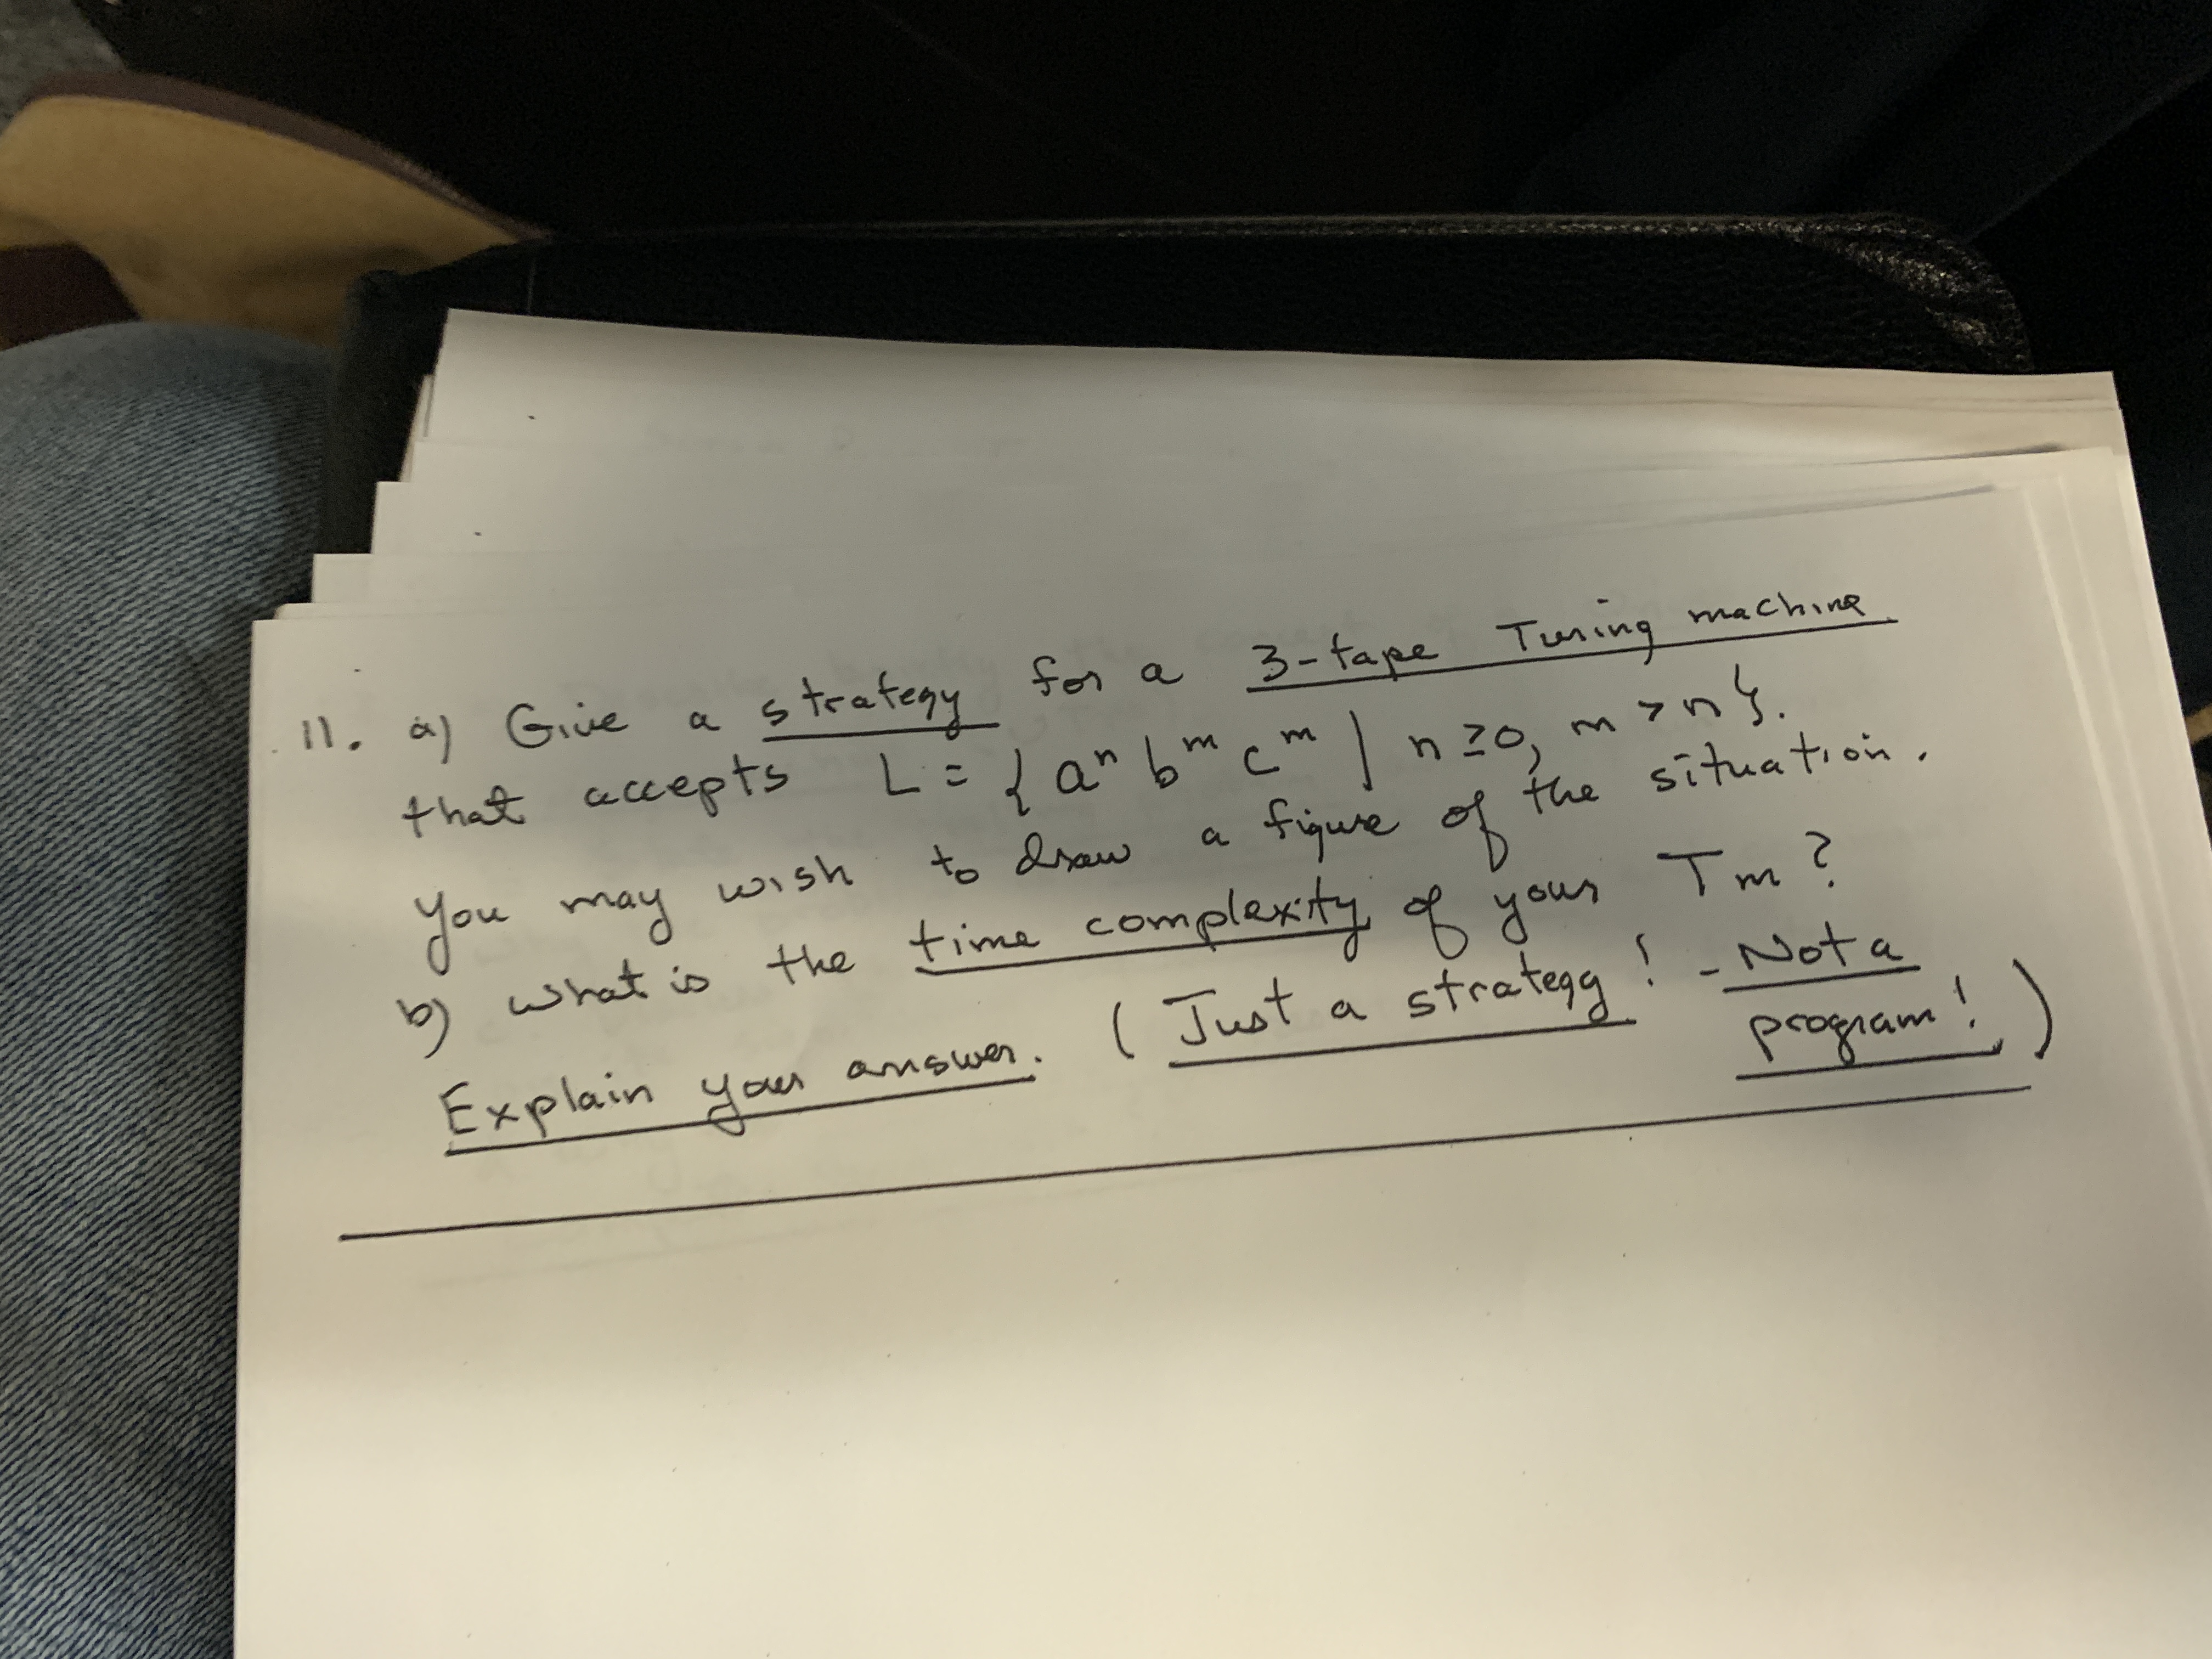 11. a) Give a strategy for a 3-tape Turing machine
that accepts L = { aⁿ bᵐ cᵐ | n ≥ 0, m > n }.
you may wish to draw a figure of the situation.
b) what is the time complexity of your Tm?
Explain your answer. ( Just a strategy! - Not a
program! )